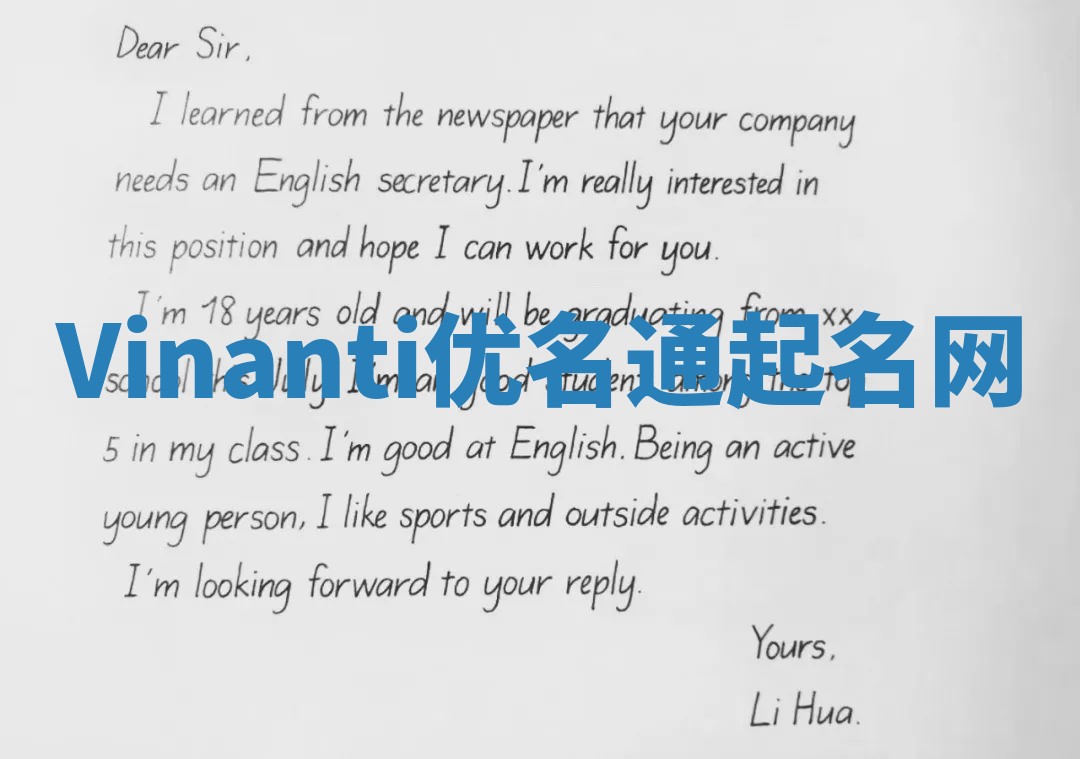 Dear Sir,
I learned from the newspaper that your company
needs an English secretary. I'm really interested in
this position and hope I can work for you.
I'm 18 years old and will be graduating from xx
Vinanti优名通起名网
school this July. I'm a good student among the top
5 in my class. I'm good at English. Being an active
young person, I like sports and outside activities.
I'm looking forward to your reply.
Yours,
Li Hua.